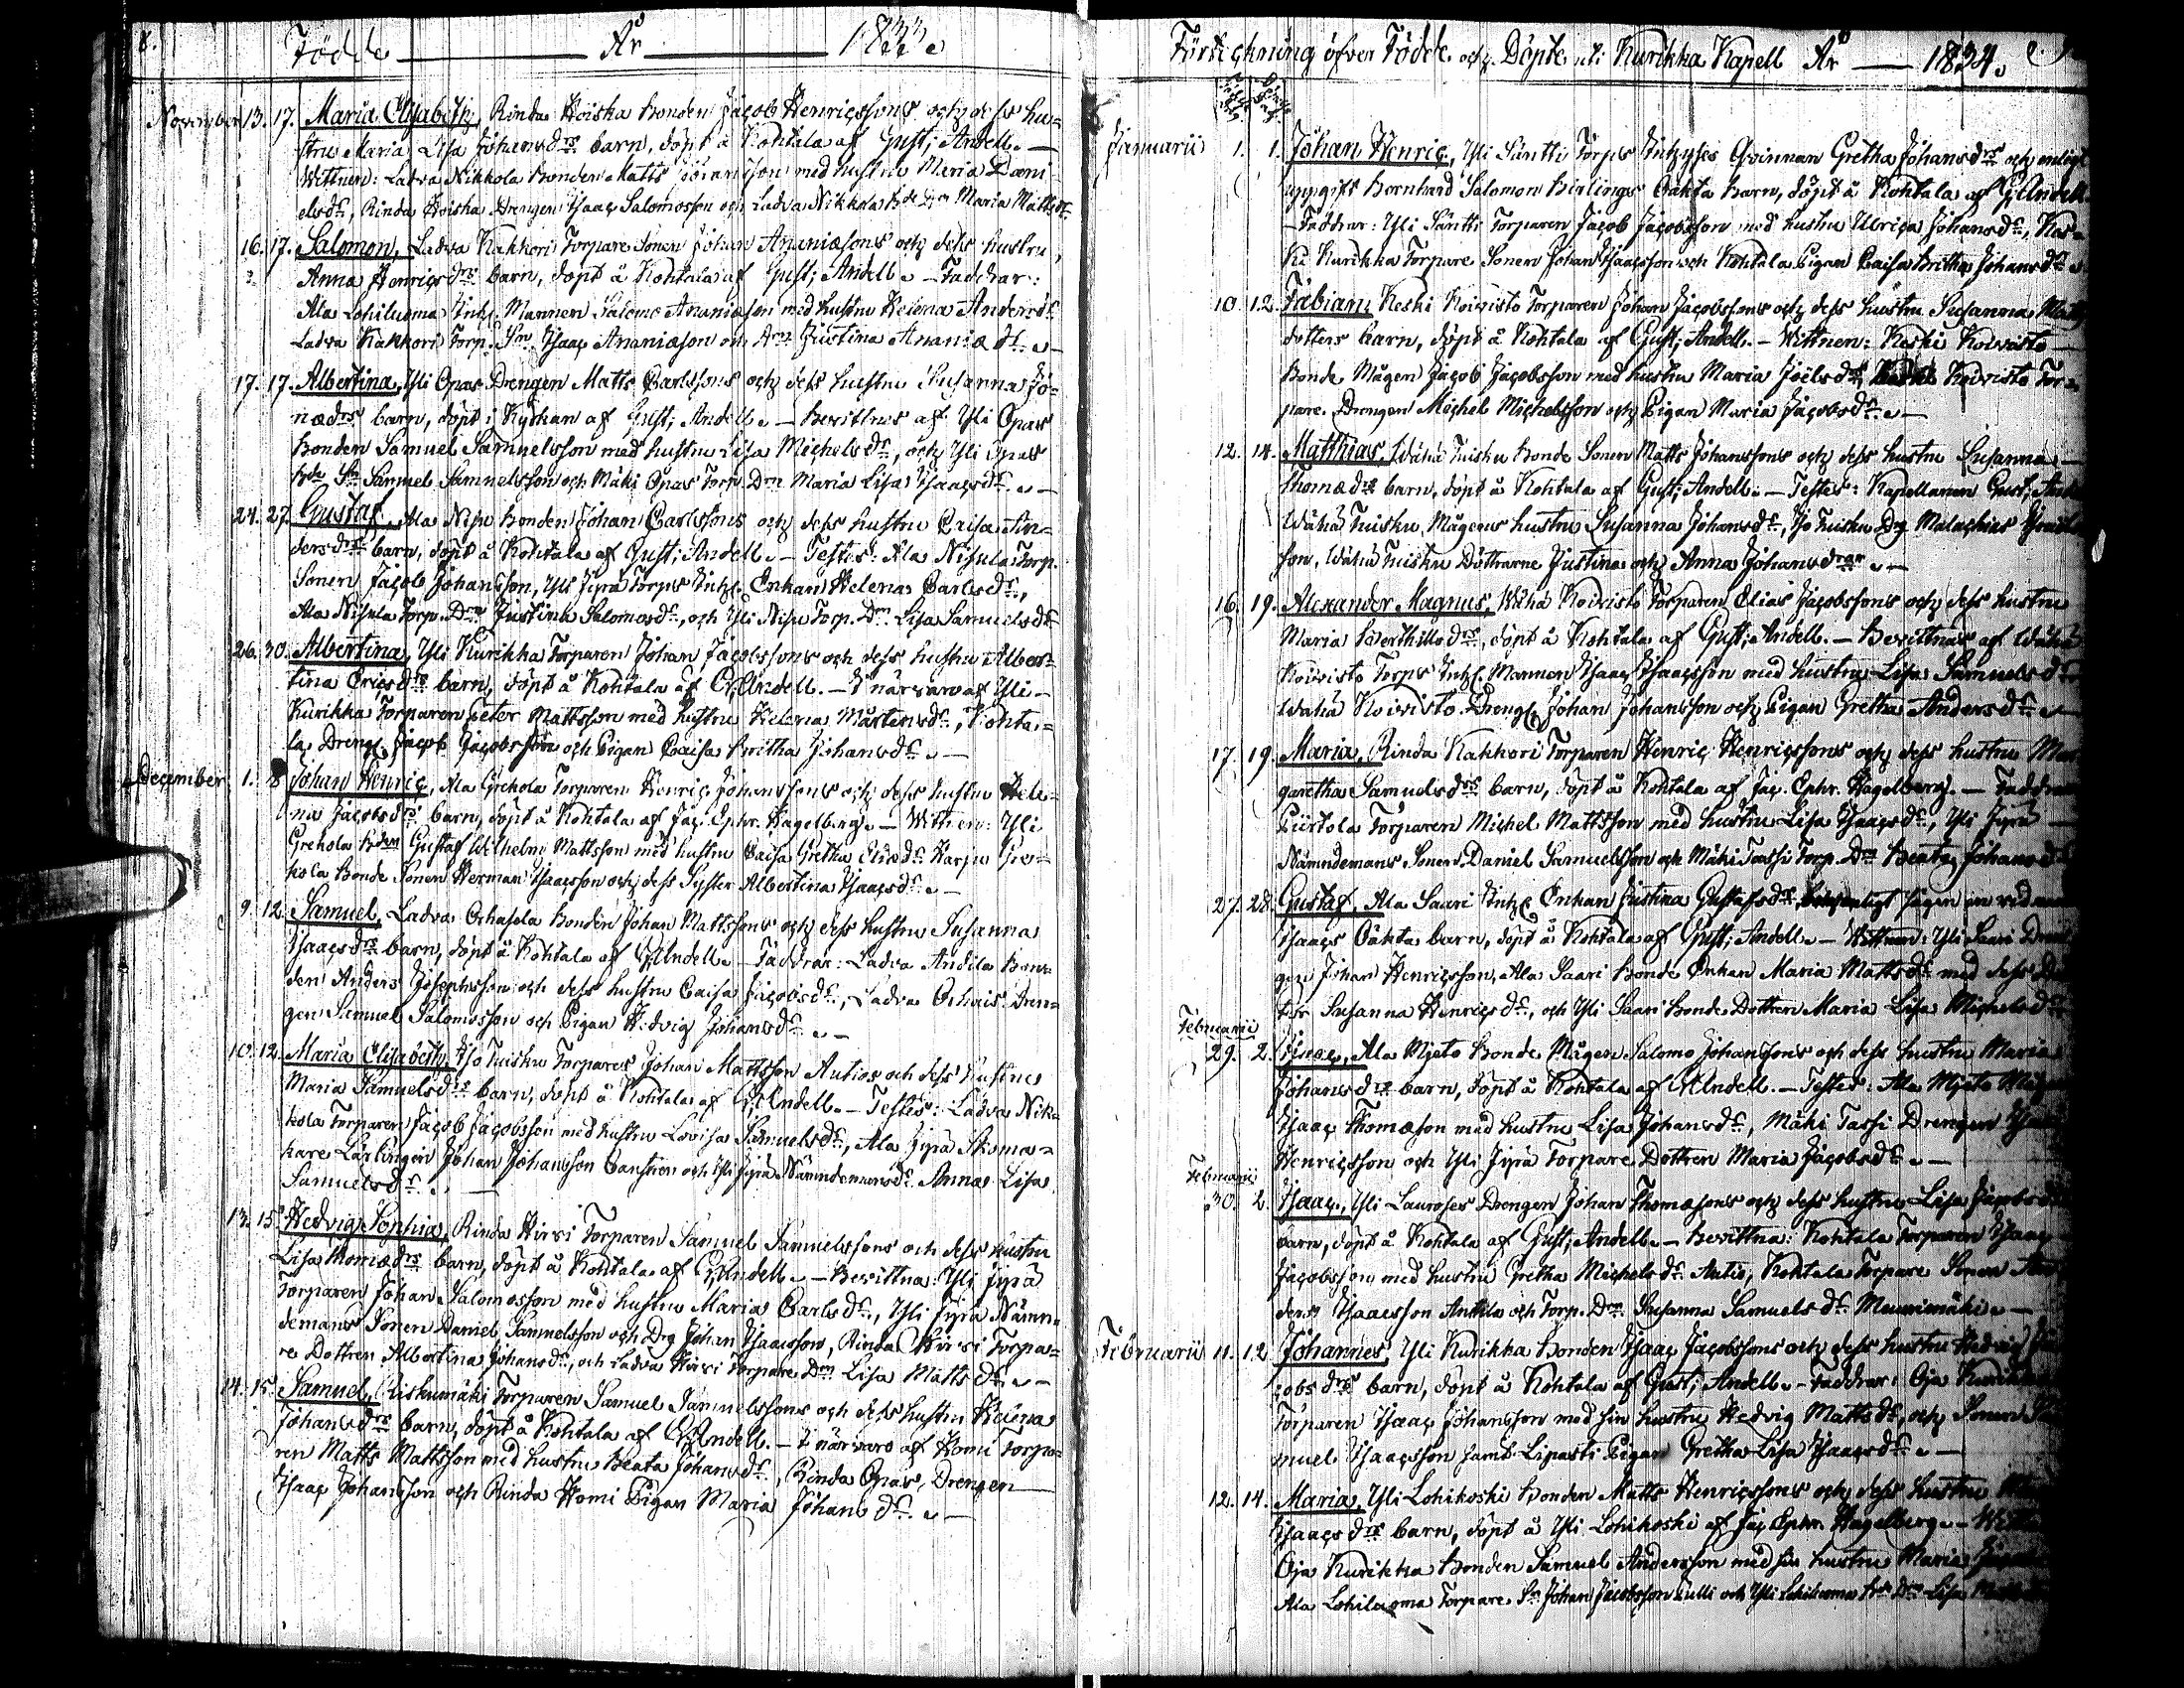 8.
Födde År 1833.
November 13. 17. Maria Elisabeth, Rinda Hoiska Bonden Jacob Henricssons och dess hu-
stru Maria Lisa Johansdrs barn, döpt å Kohtala af Gust; Andell. —
Wittnen: Ladva Nikkola bonden Matts Göransson med hustru Maria Dani-
elsdr, Rinda Hoiska Drengen Isaac Salomosson och Ladva Nikkola Bde Drn Maria Mattsdr
16. 17. Salomon, Ladva Kakkori Torpare Sonen Johan Ananiæsons och dess hustru,
Anna Henricsdrs barn, döpt å Kohtala af Gust; Andell. — Faddrar:
Ala Lohiluoma Inh. Mannen Salomo Ananiæson med hustru Helena Andersdr
Ladva Kakkori Torp. Sn. Isaac Ananiæson och Drn Justina Ananiædr. —
17. 17. Albertina, Yli Opas Drengen Matts Carlssons och dess hustru Susanna Jo-
nædrs barn, döpt i Kyrkan af Gust; Andell. — Bevittnes af Yli Opas
Bonden Samuel Samuelsson med hustru Lisa Michelsdr, och Yli Opas
Bde Sn Samuel Samuelsson och Mäki Opas Torp. Drn Maria Lisa Isaacsdr. —
24. 27. Gustaf, Ala Nisu bonden Johan Carlssons och dess hustru Caisa An-
dersdrs barn, döpt å Kohtala af Gust; Andell. — Testes: Ala Nisula Torp.
Sonen Jacob Johansson, Yli Jyrä Torps Inh. Enkan Helena Carlsdr,
Ala Nisula Torp. Drn Justina Salomosdr, och Yli Nisu Torp. Drn Lisa Samuelsdr
26. 30. Albertina, Yli Kurikka Torparen Johan Jacobssons och dess hustru Alber-
tina Ericsdrs barn, döpt å Kohtala af G; Andell. — I närvaro af Yli
Kurikka Torparen Peter Mattsson med hustru Helena Mårtensdr, Kohta-
la Dreng. Jacob Jacobsson och Pigan Caisa Britha Johansdr. —
December 1. 8 Johan Henric, Ala Grekola Torparen Henric Johanssons och dess hustru Hele-
na Jacobsdrs barn, döpt å Kohtala af Jac. Ephr. Hagelberg. — Wittnen: Yli
Grekola Bden Gustaf Wilhelm Mattsson med hustru Caisa Gretha Eliædr Harju Gre-
kola Bonde Sonen Herman Isaacsson och dess Syster Albertina Isaacsdr. —
9. 12. Samuel, Ladva Orhasela Bonden Johan Mattssons och dess hustru Susanna
Isaacsdrs barn, döpt å Kohtala af G; Andell. — Faddrar: Ladva Andila Bon-
den Anders Josephsson och dess hustru Caisa Jacobsdr, Ladva Orhais Dren-
gen Samuel Salomosson och Pigan Hedvig Johansdr. —
10. 12. Maria Elisabeth, Iso Tuisku Torpares Johan Mattsson Autios och dess hustru
Maria Samuelsdrs barn, döpt å Kohtala af G; Andell. — Testes: Ladva Nik-
kola Torparen Jacob Jacobsson med hustru Lovisa Samuelsdr, Ala Jyrä Skoma-
kare Lärlingen Johan Johansson och Yli Jyrä Nämndemansdr. Anna Lisa
Samuelsdr. —
13. 15. Hedvig Sophia, Rinda Hirvi Torparen Samuel Samuelssons och dess hustru
Lisa Thomædrs barn, döpt å Kohtala af G; Andell. — Bevittna: Yli Jyrä
Torparen Johan Salomosson med hustru Maria Carlsdr, Yli Jyrä Nämn-
demans Sonen Daniel Samuelsson och Drg Johan Isaacsson, Rinda Hirvi Torpa-
re Dottren Albertina Johansdr, och Ladva Hirvi Torpare Drn Lisa Mattsdr. —
14. 15. Samuel, Riskumäki Torparen Samuel Samuelssons och dess hustru Helena
Johansdrs barn, döpt å Kohtala af G; Andell. — I närvaro af Homi Torpa-
ren Matts Mattsson med hustru Beata Johansdr, Rinda Opas Drengen
Isaac Johansson och Rinda Homi Pigan Maria Johansdr. —
Förtekning öfver Födde och Döpte uti Kurikka Kapell År 1834.
Januarii 1. 1. Johan Henric, Yli Säntti Torps Inhyses Qvinnan Gretha Johansdrs och enligt
uppgift Bernhard Salomon Birlings Oäkta barn, döpt å Kohtala af G; Andell
— Faddrar: Yli Säntti Torparen Jacob Jacobsson med hustru Ulrica Johansdr, Kes-
ki Kurikka Torpare Sonen Johan Isaacsson och Kohtala Pigan Caisa Britha Johansdr.
10. 12. Fabian, Keski Koivisto Torparen Johan Jacobssons och dess hustru Susanna Matts
dotters barn, döpt å Kohtala af Gust; Andell. — Wittnen: Keski Koivisto
Bonde Mågen Jacob Jacobsson med hustru Maria Joelsdr, Koivisto Tor-
pare Drengen Michel Michelsson och Pigan Maria Jacobsdr. —
12. 14. Matthias, Wähä Tuisku Bonde Sonen Matts Johanssons och dess hustru Susanna
Thomædrs barn, döpt å Kohtala af Gust; Andell. — Testes: Kapellanen Gust;
Wähä Tuisku Mågens hustru Susanna Johansdr, Iso Tuisku Drg Malachias
son, Wähä Tuisku Döttrarne Justina och Anna Johansdrar. —
16. 19. Alexander Magnus, Wähä Koivisto Torparen Elias Jacobssons och dess hustru
Maria Berthillsdrs, döpt å Kohtala af Gust; Andell. — Bevittnas af Wähä
Koivisto Torps Inh. Mannen Isaac Isaacsson med hustru Lisa Samuelsdr
Wähä Koivisto Dreng. Johan Johansson och Pigan Gretha Andersdr. —
17. 19. Maria, Rinda Kakkori Torparen Henric Henricssons och dess hustru Mar
garetha Samuelsdrs barn, döpt å Kohtala af Jac. Ephr. Hagelberg. — Faddrar
Piirtola Torparen Michel Mattsson med hustru Lisa Isaacsdr, Yli Jyrä
Nämndemans Sonen Daniel Samuelsson och Mäki Tassi Torp. Drn Beata Johansdr
27. 28. Gustaf, Ala Saari Inh. Enkan Justina Gustafsdrs
Isaacs Oäkta barn, döpt å Kohtala af Gust; Andell. — Wittnen: Yli Saari Dren
gen Johan Henricsson, Ala Saari Bonde Enkan Maria Mattsdr med dess
ter Susanna Henricsdr, och Yli Saari Bonde Dottren Maria Lisa Michelsdr
Februarii
29. 2. Isaac, Ala Mjeto Bonde Mågen Salomo Johanssons och dess hustru Maria
Johansdrs barn, döpt å Kohtala af G; Andell. — Testes: Ala Mjeto
Isaac Thomæson med hustru Lisa Johansdr, Mäki Tassi Drengen
Henricsson och Yli Jyrä Torpare Dottren Maria Jacobsdr. —
Februarii
30. 2. Isaac, Yli Lauroses Drengen Johan Thomæsons och dess hustru Lisa
barn, döpt å Kohtala af Gust; Andell. — Bevittna: Kohtala Torparen Isaac
Jacobsson med hustru Gretha Michelsdr Autio, Kohtala Torpare Sonen An
ders Isaacsson Anttila och Torp. Drn Susanna Samuelsdr Meurimäki. —
Februarii 11. 12 Johannes, Yli Kurikka Bonden Isaac Jacobssons och dess hustru Hedvig Ja
cobsdrs barn, döpt å Kohtala af Gust; Andell. — Faddrar: Oja Kurikka
Torparen Isaac Johansson med sin hustru Hedvig Mattsdr, och Sonen Sa
muel Isaacsson samt Lipasti Pigan Gretha Lisa Isaacsdr. —
12. 14. Maria, Yli Lohikoski Bonden Matts Henricssons och dess hustru
Isaacsdrs barn, döpt å Yli Lohikoski af Jac Ephr. Hagelberg. —
Oja Kurikka Bonden Samuel Andersson med sin hustru Maria
Ala Lohiluoma Torpare Sn Johan Jacobsson Lulli och Yli Lohiluoma Bde Drn Lisa